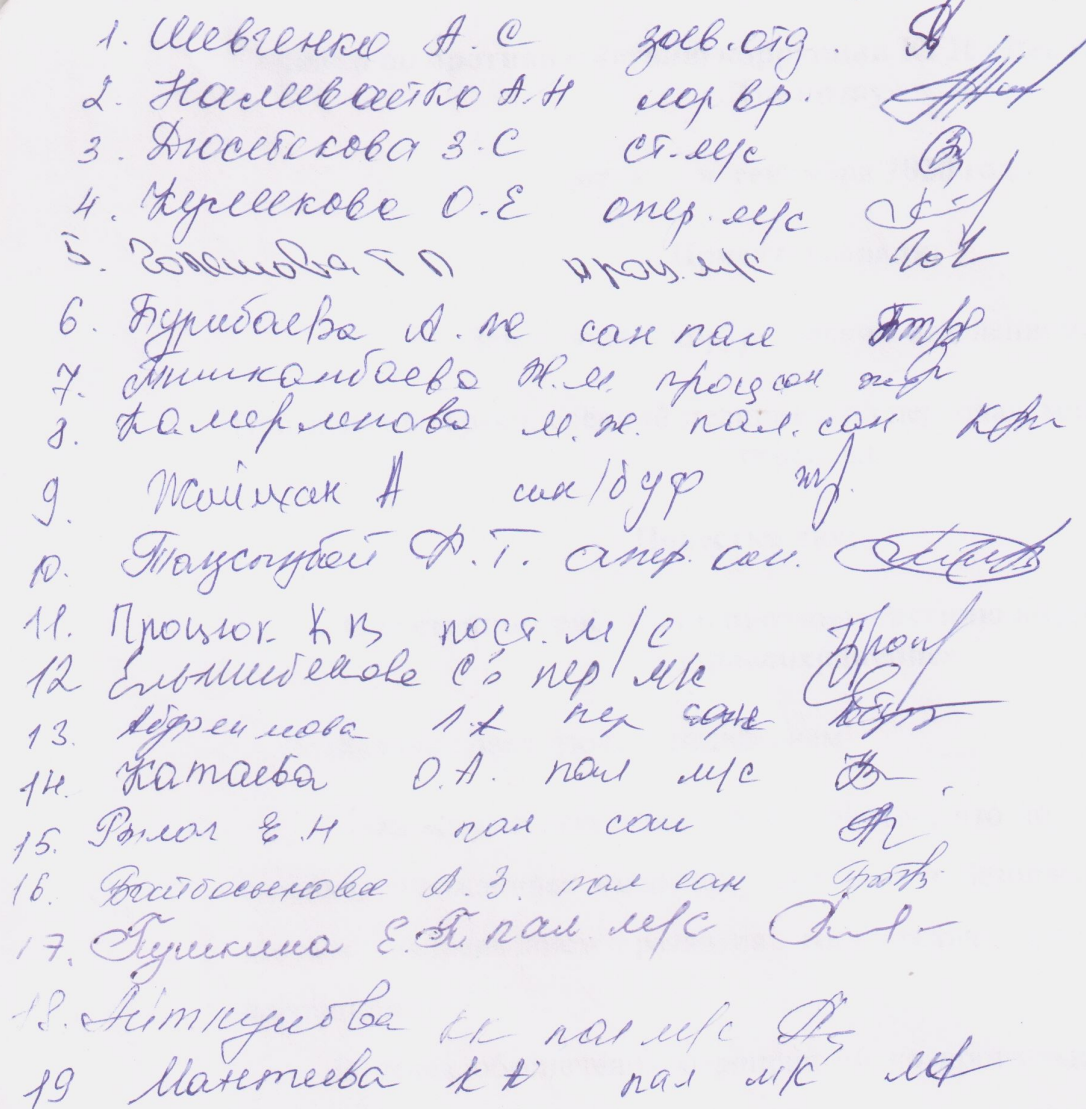 1. Шевченко А. С зав. отд.
2. Наливайко А. Н лор вр.
3. Дюсебекова З. С ст. м/с
4. Кулшекова О. Е опер. м/с
5. Т П проц. м/с
6. Бурибаева А. Ж сан пал
7. Тишканбаева Ж. М. процсан
8. Камерленова М. Ж. пал. сан
9. Жайихан А сан/буф
10. Р. Т. опер. сан.
11. Процюк К В пост. м/с
12 Ельшибекова С. пер м/с
13. Абреимова Л. А пер
14. Катаева О. А. пал м/с
15. Рылач Е. Н пал сан
16. Байбосынова А. З. пал сан
17. Пушкина Е. П. пал м/с
18. Айткулова К К пал м/с
19 Мантеева К К пал м/с